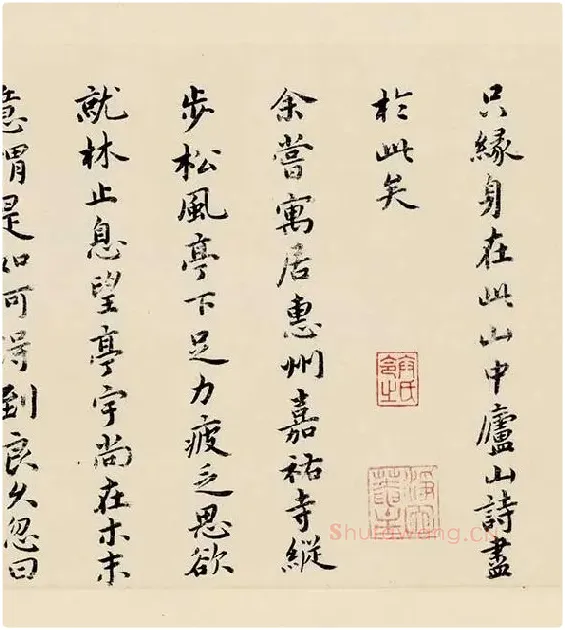 只緣身在此山中廬山詩盡
於此矣
余嘗寓居惠州嘉祐寺縱
步松風亭下足力疲乏思欲
就林止息望亭宇尚在木末
意謂是如可得到良久忽曰